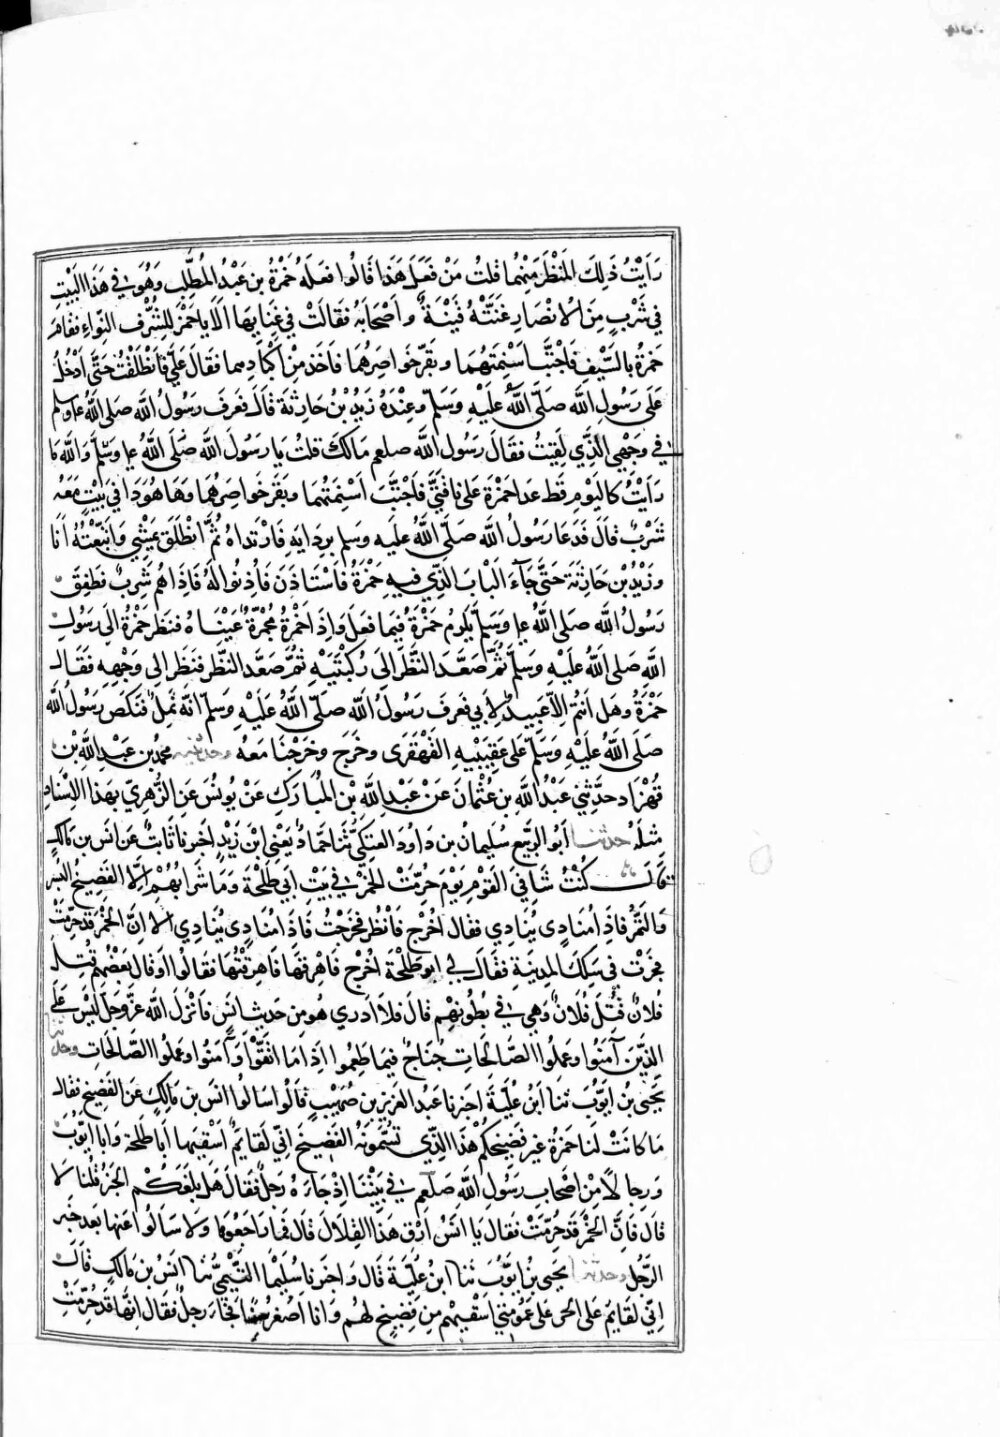 رَاَيْتُ ذَلِكَ المَنْظَرَ مِنْهُمَا قلتُ مَنْ فَعَلَ هَذا قَالُوا فعَلَهُ حَمْزَةُ بن عَبْدُ المُطَّلِب وهُوَ في هَذَا البَيْتِ
في شَرْبٍ مِنَ الانْصَارِ غَنَتْهُ قَيْنَةٌ وأَصْحَابَهُ فقَالَتْ في غِنَايِهَا الَا يا حَمْزَ للشُّرُف النِواءِ فقامَ
حَمزةُ بالسَّيْفِ فَاجْتَبَّ اسْنِمَتَهُمَا وبَقَرَ خَواصِرَهُمَا فَاخَذَ مِنْ اكْبادِهما فقَالَ عَلَيّ فَانْطَلَقْتُ حَتَّى اَدْخُلُ
عَلَى رَسُولِ اللّه صَلَّى اللّهُ عَلَيْهِ وَسَلّم وعِنْدَهُ زَيدُ بْنُ حَارِثَة قَالَ فعَرفَ رَسُولُ اللّه صلى اللّهُ عل وسلم
في وَجْهِي الَّذِي لَقِيتُ فقَالَ رَسُول اللّه صلعم مَالَكَ قلتُ يَا رَسُولَ اللّه صَلَّى اللّهُ عل وَسَلَّم وَاللّه مَا
رَاَيْتُ كاليَومِ قَط عَدا حَمْزَة عَلى نَاقَتَيَّ فَاجْتَبَّ اَسْنِمَتَهُمَا وبَقَرَ خَواصِرهُما وهَا هُوَ ذَا في بَيْتٍ مَعَهُ
شَرْبٌ قالَ فَدَعَا رَسُولُ اللّه صَلَّى اللّهُ علَيه وسَلم بردَايَهِ فَارْتَداهُ ثُمَّ انْطَلَقَ يَمْشِي وَاتَبَعْتُهُ اَنَا
وزَيْدُ بْن حَارثَة حَتَّى جَآءَ البَابَ الَّذِي فيهِ حَمْزةُ فاسْتَاذَنَ فَاُذِنُوا لَهُ فَاِذَا هُم شَرْبٌ فطَفِقَ
رَسُولُ اللّه صَلى اللّهُ عل وَسَلَّم يَلُومُ حَمْزَةُ فِيما فعَلَ وَاِذَا حَمْزَةُ مُحْمَرّةٌ عَيْنَاهُ فنَظَر حَمْزَةُ الَى رَسُولِ
اللّهِ صَلى اللّهُ عَلَيْهِ وَسَلَّم ثُمَّ صَعَّدَ النَّظَرَ اِلَى رُكْبَتَيْهِ ثُمَّ صَعَّدَ النَّظَر فنَظَرَ الى وَجْهِهِ فَقَالَ
حَمْزَةُ وهَل اَنْتُم اِلَّا عَبِيدٌ لِأَبِي فعَرفَ رَسُولُ اللّه صَلَّى اللّهُ عَلَيْهِ وَسَلّم انَّهُ ثمِلٌ فنَكَصَ رَسُولُ اللّه
صَلَى اللّهُ عَلَيْهِ وَسَلّم عَلى عَقِبَيْهِ القَهْقَرَى وخَرجَ وخَرَجْنَا مَعَهُ وحدثنيه محمدُ بن عَبْدِ اللّهِ بْن
قُهْزَاد حَدَّثنِي عَبْدُ اللّهِ بن عُثْمَانَ عَنْ عَبْدِ اللّهِ بْنِ المُبَارَكِ عَنْ يُونُسَ عَنِ الزُّهرِيِّ بهَذا الاِسْنادِ
مثلَهُ حدثنا اَبُو الرَّبِيع سُلَيمَانُ بن دَاوُدَ العَتَكِيّ ثَنَا حَمَّادٌ يَعْنِي ابْنَ زَيْدٍ اخبرنا ثَابتٌ عَن انس بن مَالكٍ
قَالَ كُنْتُ سَاقي القَوْمِ يَوْمَ حُرِّمَتْ الخَمْرُ في بَيْتِ اَبي طَلحَة وَمَا شَرَابُهُمْ اِلَّا الفَضِيخُ البُسْر
وَالتَّمْرُ فاِذَا مُنَادِي يُنَادِي فقال اخْرُج فَانْظُر فخَرَجْتُ فَاذَا مُنَادِي يُنَادِي الا اِنَّ الخَمْرَ قَدْ حُرِّمَتْ
فجَرَتْ في سِكَكِ المدِينَةِ فقَالَ لِي ابو طَلحَةَ اخْرُج فَاهْرِقهَا فَاهرقْتُهَا فقَالُوا اَوقَال بَعْضُهُم قُتِلَ
فُلانٌ قُتِلَ فُلانٌ وَهي في بُطُونِهِم قالَ فلَا اَدرِي هُو مِن حَديث انَسٍ فَانْزَلَ اللّه عَزَّ وَجَلَّ لَيْسَ عَلى
الذِينَ آمَنُوا وعَمِلُوا الصَّالحَاتِ جُنَاحٌ فِيمَا طَعِمُوا اِذَا مَا اتَقَوْا وآمَنُوا وعَملُوا الصَّالحَات وحدثنا
يَحيَى بن ايّوُبَ ثنَا ابْنُ عُلَيَّةَ اخبَرنا عَبدُ العَزِيز بن صُهَيْبٍ قَالُوا سَالُوا انَسَ بن مَالِكٍ عَن الفَضِيخ فقَالَ
مَا كَانَتْ لنَا خَمرَةٌ غَير فَضِيخِكُم هَذا الِّذِي تُسَمُّونَهُ الفَضِيخَ اِنِّي لَقَايِمٌ اَسْقِيهَا اَبَا طَلحَة وَابَا ايُّوبَ
وَرِجالًا مِنْ اصْحَابِ رَسُولِ اللّهِ صَلعم في بَيْتِنَا اِذ جَاءَهُ رَجلٌ فقَالَ هَل بَلغَكُم الخَبَرُ قُلنَا لا
قالَ فَاِنَّ الخَمْرَ قَدْ حُرِّمَتْ فقالَ يَا انَسُ اَرِق هَذا القِلَال قالَ فَما رَاجَعُوهَا ولا سَالُوا عَنهَا بَعدَ خَبر
الرَّجُل وحدثنا يَحيَى بْنُ ايّوُبَ ثنَا ابنُ عُلَيَّةَ قَالَ وَاخبَرنَا سُلَيْمانُ التَّيْمِيُّ ثنا انَسُ بن مَالكٍ قَالَ
اِنِّي لَقَايِمٌ عَلى الحَي عَلى عُمُومَتِي اسْقِيهِمْ مِن فَضِيخٍ لَهُم وَانَا اصْغَرهُم سِنًّا فجَاءَ رَجلٌ فقَال اِنَّهَا قَدْ حُرِّمَتْ